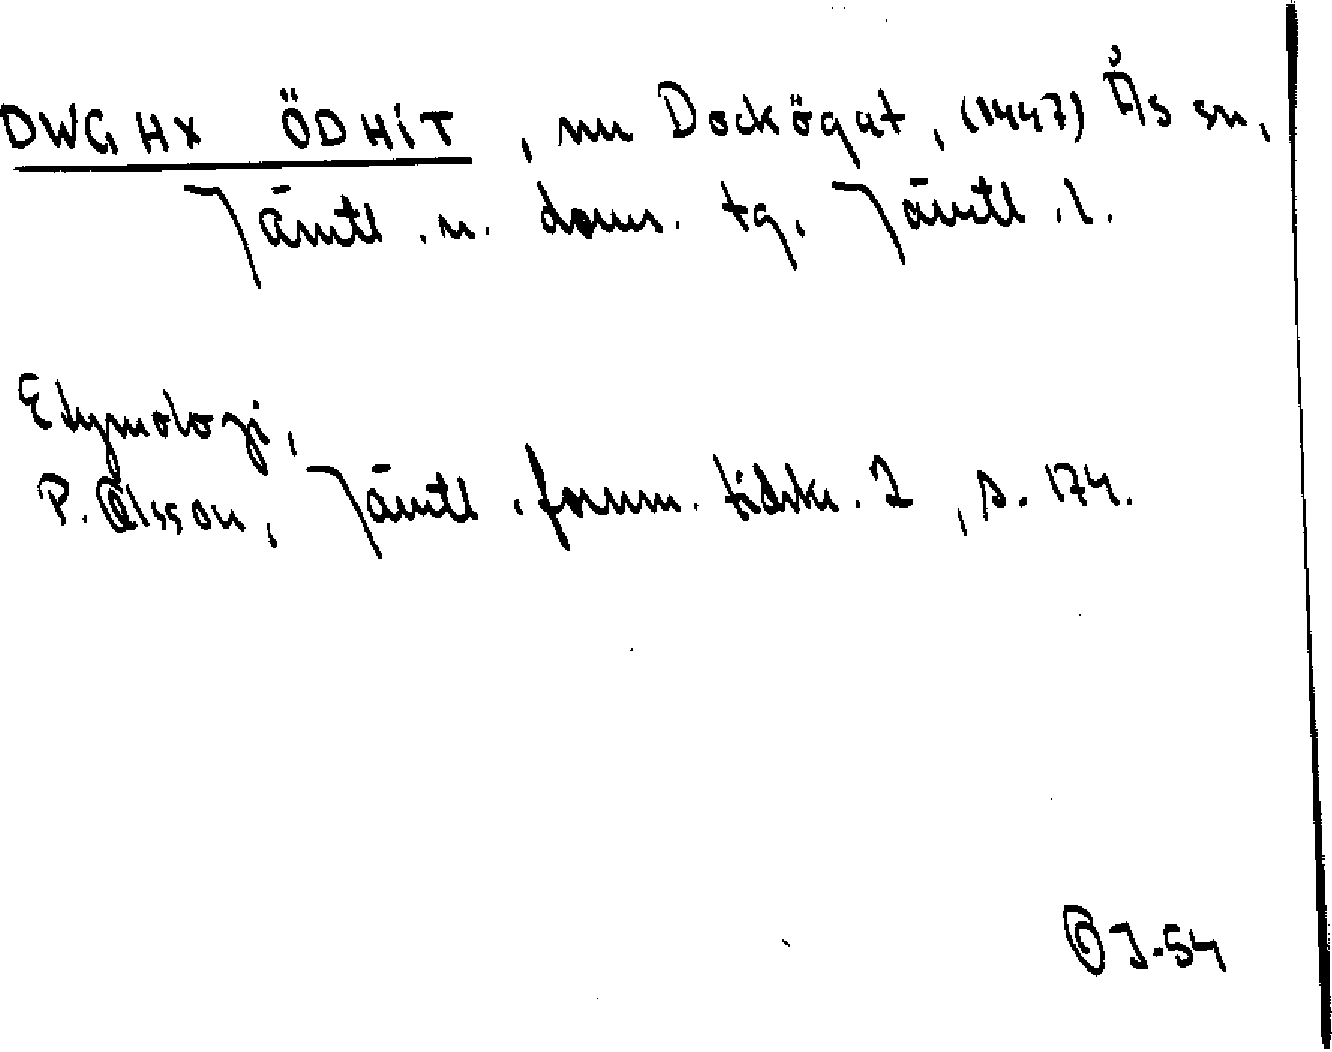 DWGHX ÖDHIT, nu Dockögat, (1447) Ås sn,
Jämtl. n. doms. tg, Jämtl. l.
Etymologi,
P. Olsson, Jämtl. fornm. tidskr. 2, s. 174.
J-54